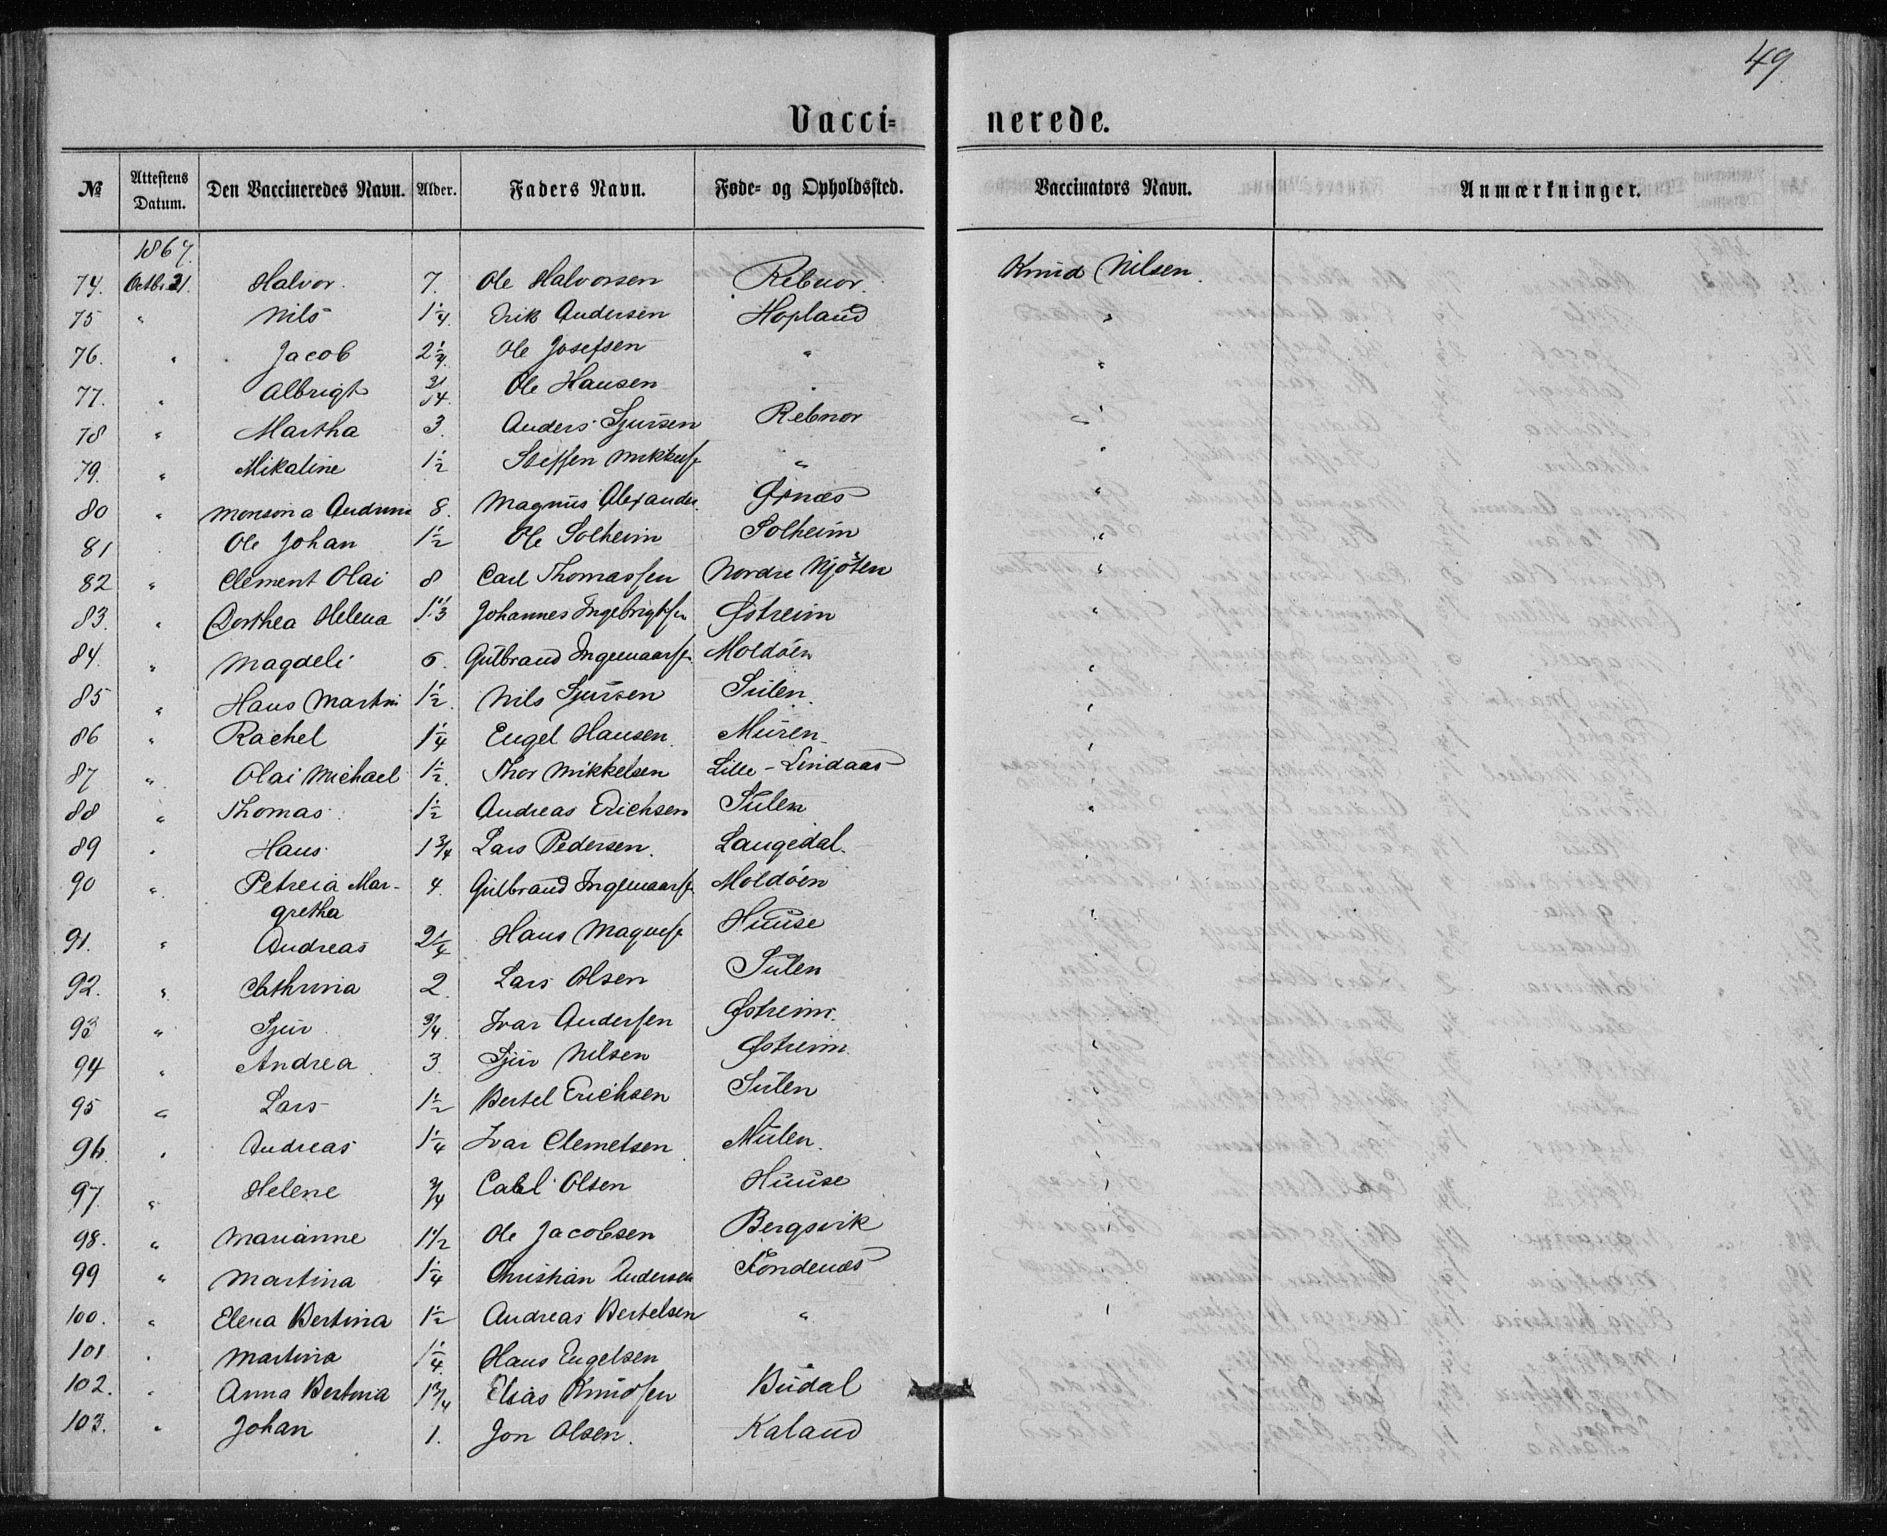 49
Vacci= nerede.
№ Attestens Datum. Den Vaccineredes Navn. Alder. Faders Navn. Føde= og Opholdssted. Vaccinators Navn. Anmærkninger.
1867.
74. Octb. 21. Halvor. 7. Ole Halvorsen Rebnor. Knud Nilsen.
75 " Nils 1 1/4. Erik Andersen Hopland "
76. " Jacob 2 1/4. Ole Josefsen " "
77. " Albrigt 3/4. Ole Hansen " "
78 " Martha 3. Anders Sjursen Rebnor "
79. " Mikaline 1 1/2 Steffen Mikkels. " "
80 " Monsona Andrine 8. Magnus Alexander. Ørnæs "
81 Ole Johan 1 1/2 Ole Solheim Solheim "
82 " Clement Olai 8 Carl Thomassen Nordre Njøten "
83. " Dorthea Helena 1 1/3 Johannes Ingebrigtsen Østreim "
84. " Magdeli 6. Gulbrand Ingemaars. Moldøen "
85 " Hans Martin 1 1/2. Nils Sjursen Sulen. "
86 " Rachel 1 1/4 Engel Hansen. Muren "
87 " Olai Michael 1 1/2. Thor Mikkelsen Lille-Lindaas "
88 " Thomas 1 1/2 Andreas Erichsen Sulen "
89 " Hans 1 3/4 Lars Pedersen. Langedal. "
90 " Petreia Mar- 4. Gulbrand Ingemaars. Moldøen "
gretha
91. " Andreas 2 1/4 Hans Magnes. Huuse "
92. " Cathrina 2. Lars Olsen Sulen "
93 " Sjur 3/4 Ivar Andersen Østreim. "
94 " Andrea 3. Sjur Nilsen Østreim "
95 " Lars 1 1/2 Bertel Erichsen Sulen "
96. " Andreas 1 1/4 Ivar Clemetsen Mulen. "
97. " Helene 3/4 Olsen Huuse "
98. " Marianne 1 1/2 Ole Jacobsen Bergsvik "
99 " Martina 1 1/4 Christian Andersen Føndenæs "
100. " Elena Bertina 1 1/2 Andreas Bertelsen " "
101 " Martina 1 1/4. Hans Engelsen
102. " Anna Bertina 1 3/4 Elias Knudsen Budal
103. " Johan 1. Jon Olsen. Kaland